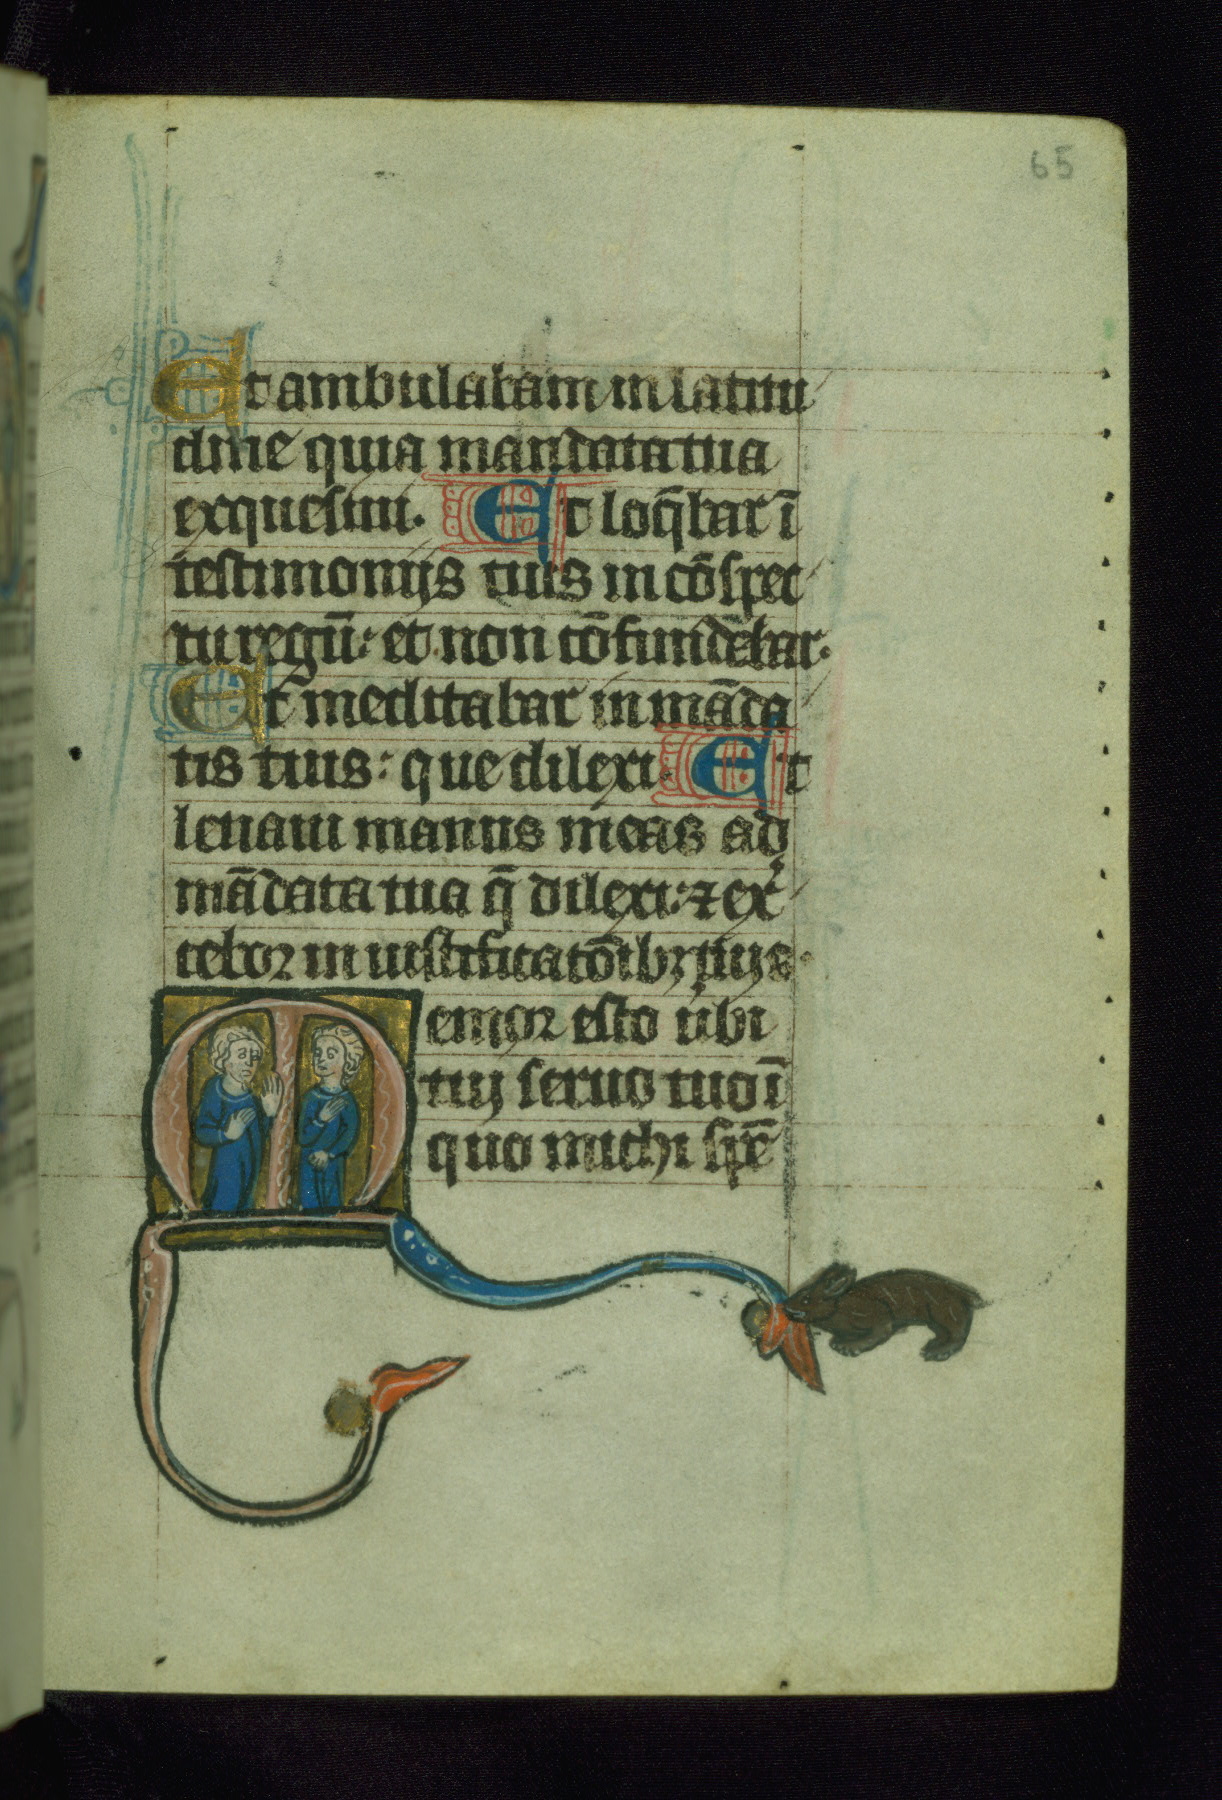 65
Et ambulabam in latitu
dine quia mandata tua
exquesiui. Et loq̄bar ī
testimonijs tuis in cōspec
tu regū: et non cōfundebar.
Et meditabar in māda
tis tuis: que dilexi. Et
leuaui manus meas ad
mādata tua q̄ dilexi: ⁊ ex̾
cebor in iustificatōibꝫ tuis.
Memor esto v̾bi
tui seruo tuo ī
quo michi spē